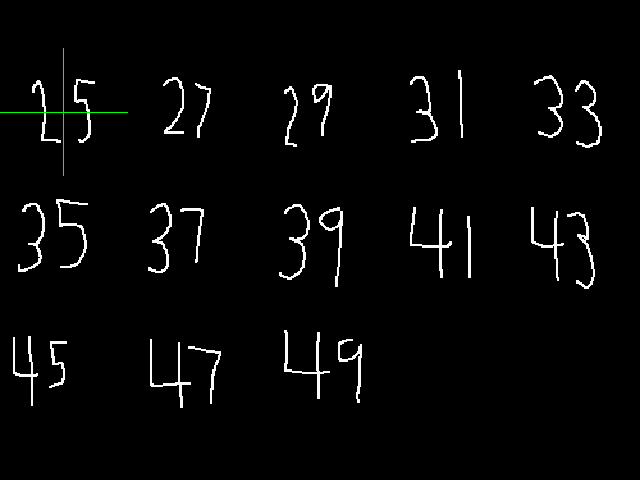 25 27 29 31 33
35 37 39 41 43
45 47 49